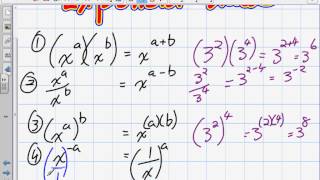 Exponent
① (x^a)(x^b) = x^(a+b) (3^2)(3^4) = 3^(2+4) = 3^6
② x^a/x^b = x^(a-b) 3^2/3^4 = 3^(2-4) = 3^-2
③ (x^a)^b = x^((a)(b)) (3^2)^4 = 3^((2)(4)) = 3^8
④ (x/1)^-a = (1/x)^a